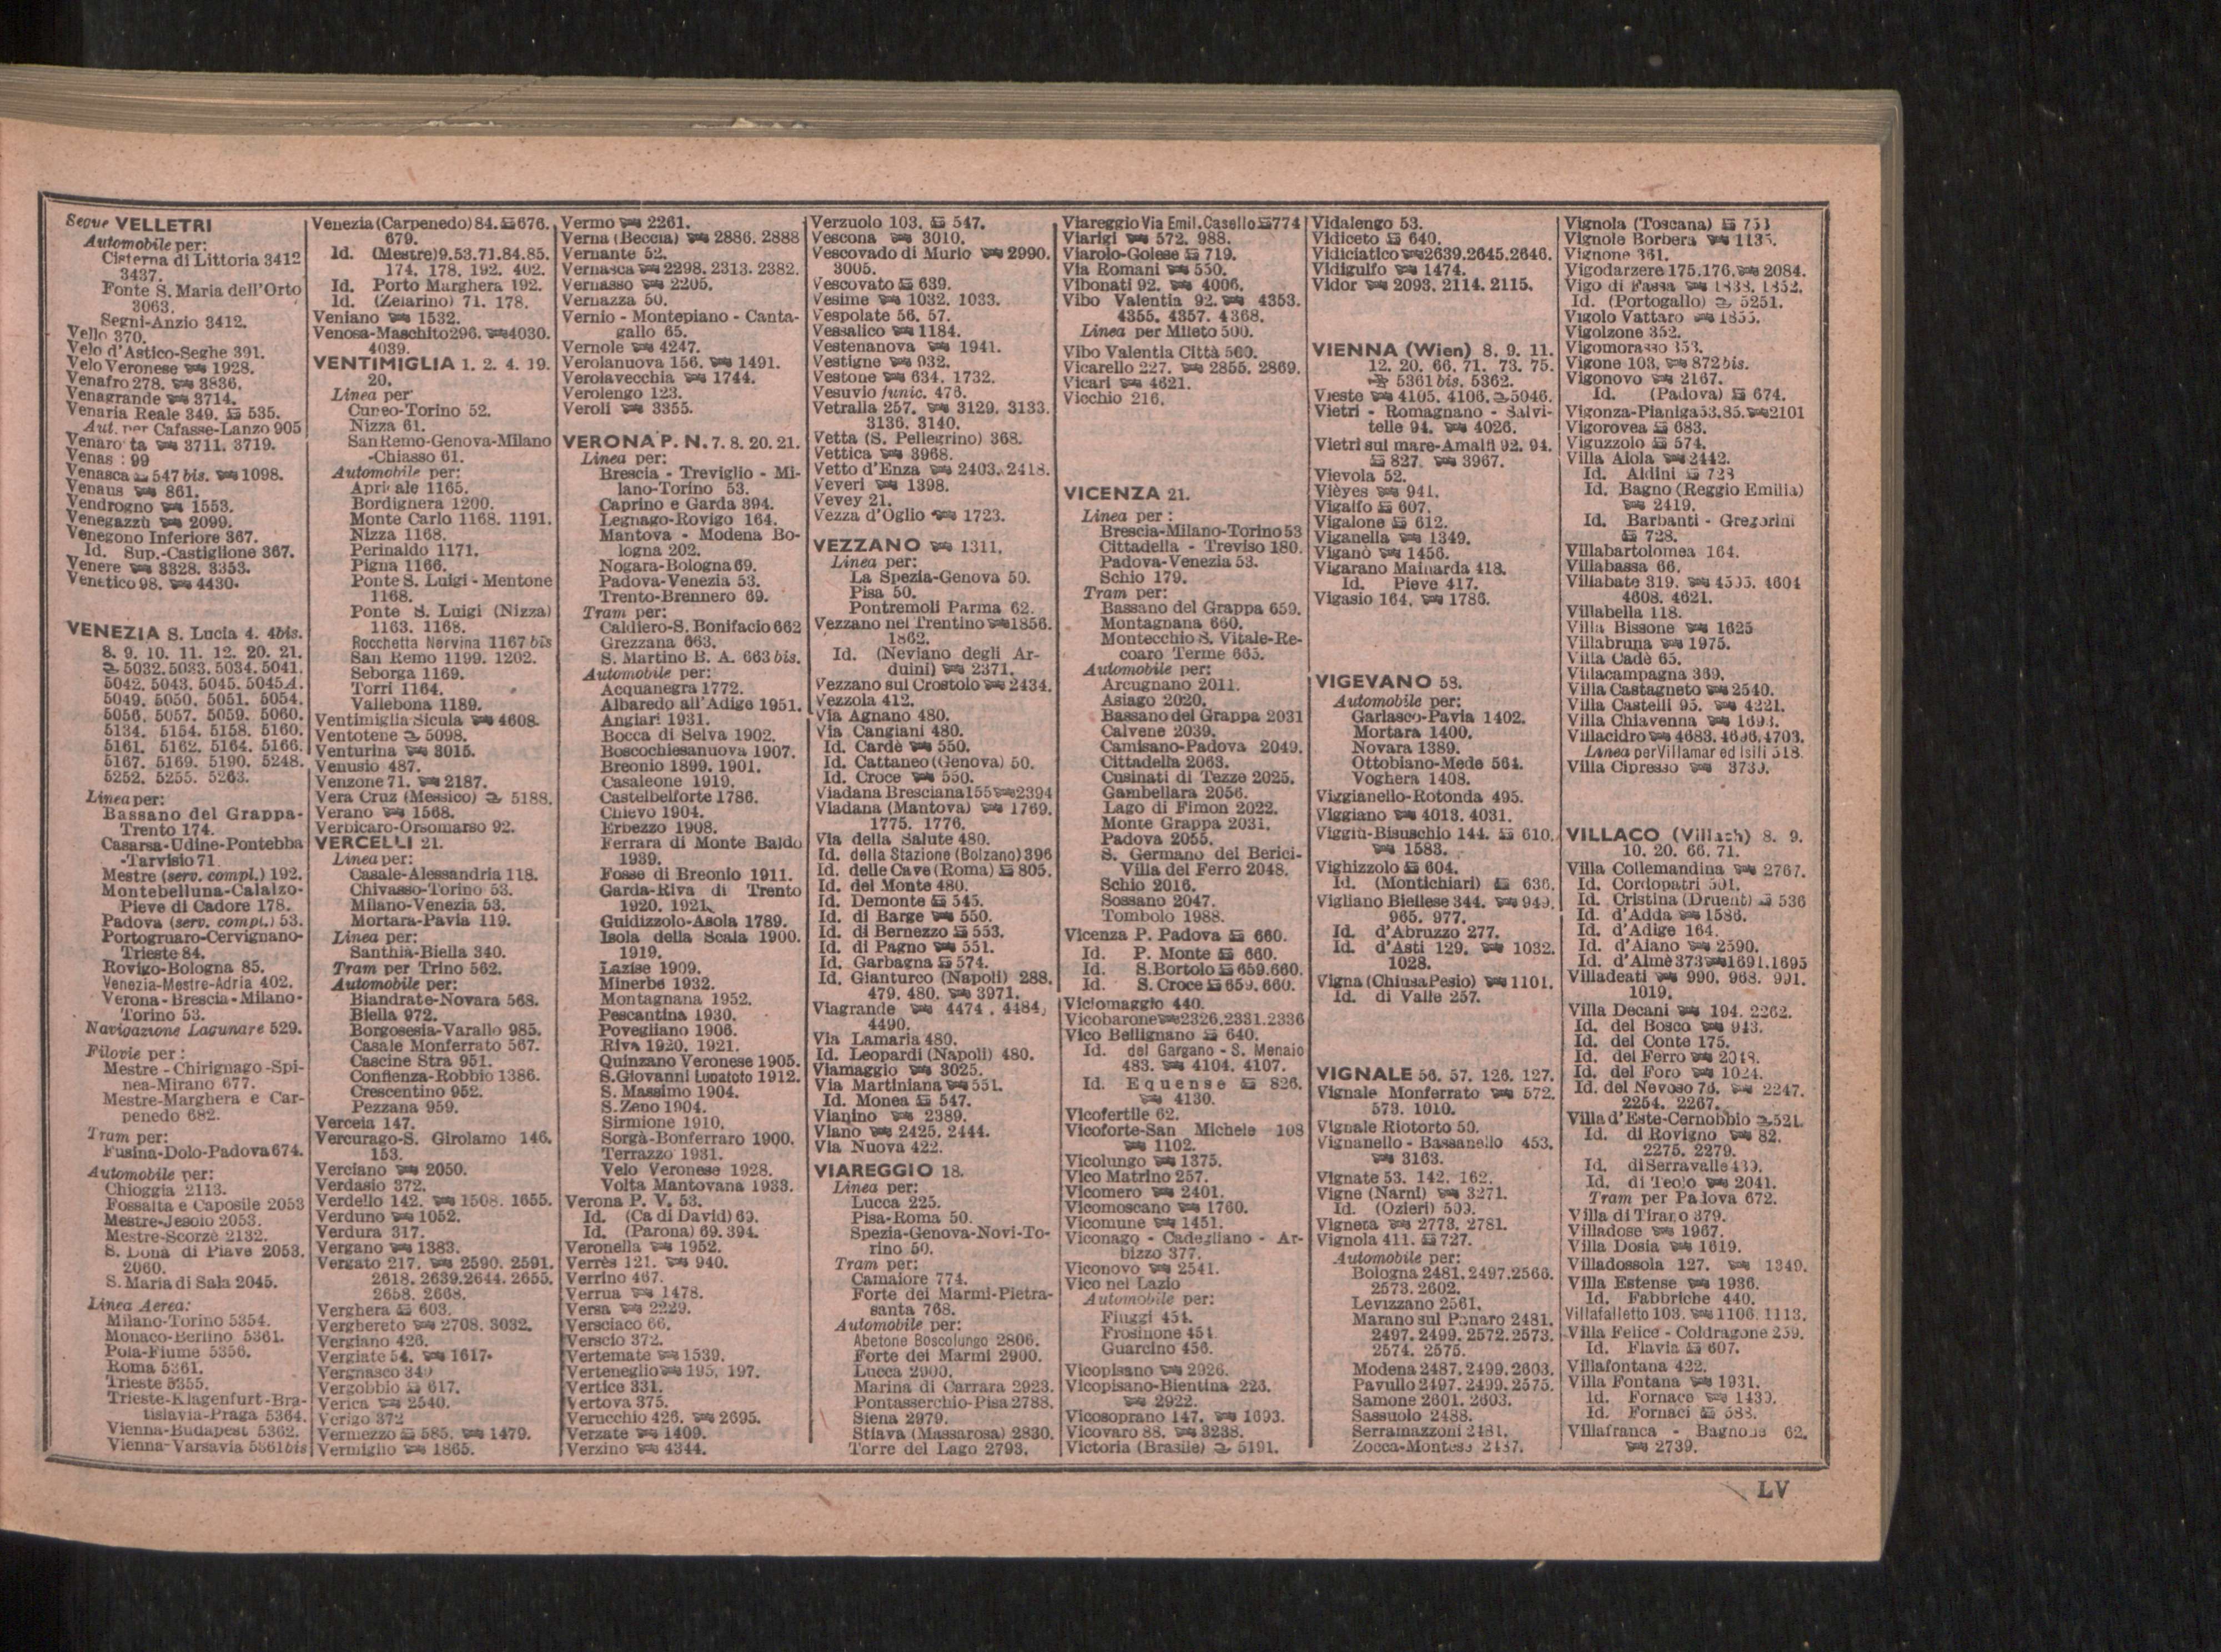 Segue VELLETRI
Automobile per:
Cisterna di Littoria 3412
3437.
Fonte S. Maria dell'Orto
3063.
Segni-Anzio 3412.
Vello 370.
Velo d'Astico-Seghe 391.
Velo Veronese 1928.
Venafro 278. 3836.
Venagrande 3714.
Venaria Reale 349. 535.
Aut. per Cafasse-Lanzo 905
Venarotta 3711. 3719.
Venas : 99
Venasca 547 bis. 1098.
Venaus 861.
Vendrogno 1553.
Venegazzù 2099.
Venegono Inferiore 367.
Id. Sup.-Castiglione 367.
Venere 3328. 3353.
Venetico 98. 4430.
VENEZIA S. Lucia 4. 4bis.
8. 9. 10. 11. 12. 20. 21.
5032. 5033. 5034. 5041.
5042. 5043. 5045. 5045A.
5049. 5050. 5051. 5054.
5056. 5057. 5059. 5060.
5134. 5154. 5158. 5160.
5161. 5162. 5164. 5166.
5167. 5169. 5190. 5248.
5252. 5255. 5263.
Linea per:
Bassano del Grappa-
Trento 174.
Casarsa-Udine-Pontebba
-Tarvisio 71
Mestre (serv. compl.) 192.
Montebelluna-Calalzo-
Pieve di Cadore 178.
Padova (serv. compl.) 53.
Portogruaro-Cervignano-
Trieste 84.
Rovigo-Bologna 85.
Venezia-Mestre-Adria 402.
Verona-Brescia-Milano-
Torino 53.
Navigazione Lagunare 529.
Filovie per:
Mestre-Chirignago-Spi-
nea-Mirano 677.
Mestre-Marghera e Car-
penedo 682.
Tram per:
Fusina-Dolo-Padova 674.
Automobile per:
Chioggia 2113.
Fossalta e Caposile 2053
Mestre-Jesolo 2053.
Mestre-Scorzè 2132.
S. Donà di Piave 2053.
2060.
S. Maria di Sala 2045.
Linea Aerea:
Milano-Torino 5354.
Monaco-Berlino 5361.
Pola-Fiume 5356.
Roma 5361.
Trieste 5355.
Trieste-Klagenfurt-Bra-
tislavia-Praga 5364.
Vienna-Budapest 5362.
Vienna-Varsavia 5361bis
Venezia (Carpenedo) 84. 676.
679.
Id. (Mestre) 9. 53. 71. 84. 85.
174. 178. 192. 402.
Id. Porto Marghera 192.
Id. (Zelarino) 71. 178.
Veniano 1532.
Venosa-Maschito 296. 4030.
4039.
VENTIMIGLIA 1. 2. 4. 19.
20.
Linea per
Cuneo-Torino 52.
Nizza 61.
San Remo-Genova-Milano
-Chiasso 61.
Automobile per:
Apricale 1165.
Bordighera 1200.
Monte Carlo 1168. 1191.
Nizza 1168.
Perinaldo 1171.
Pigna 1166.
Ponte S. Luigi-Mentone
1168.
Ponte S. Luigi (Nizza)
1163. 1168.
Rocchetta Nervina 1167bis
San Remo 1199. 1202.
Seborga 1169.
Torri 1164.
Vallebona 1189.
Ventimiglia Sicula 4608.
Ventotene 5098.
Venturina 3015.
Venusio 487.
Venzone 71. 2187.
Vera Cruz (Messico) 5188.
Verano 1568.
Verbicaro-Orsomarso 92.
VERCELLI 21.
Linea per:
Casale-Alessandria 118.
Chivasso-Torino 53.
Milano-Venezia 53.
Mortara-Pavia 119.
Linea per:
Santhià-Biella 340.
Tram per Trino 562.
Automobile per:
Biandrate-Novara 568.
Biella 972.
Borgosesia-Varallo 985.
Casale Monferrato 567.
Cascine Stra 951.
Confienza-Robbio 1386.
Crescentino 952.
Pezzana 959.
Verceia 147.
Vercurago-S. Girolamo 146.
153.
Verciano 2050.
Verdasio 372.
Verdello 142. 1508. 1655.
Verduno 1052.
Verdura 317.
Vergano 1383.
Vergato 217. 2590. 2591.
2618. 2639. 2644. 2655.
2658. 2668.
Verghera 603.
Verghereto 2708. 3032.
Vergiano 426.
Vergiate 54. 1617.
Vergnasco 340
Vergobbio 617.
Verica 2540.
Verigo 372
Vermezzo 585. 1479.
Vermiglio 1865.
Vermo 2261.
Verna (Beccia) 2886. 2888
Vernante 52.
Vernasca 2298. 2313. 2382.
Vernasso 2205.
Vernazza 50.
Vernio - Montepiano - Canta-
gallo 65.
Vernole 4247.
Verolanuova 156. 1491.
Verolavecchia 1744.
Verolengo 123.
Veroli 3355.
VERONA P. N. 7. 8. 20. 21.
Linea per:
Brescia - Treviglio - Mi-
lano-Torino 53.
Caprino e Garda 394.
Legnago-Rovigo 164.
Mantova - Modena Bo-
logna 202.
Nogara-Bologna 69.
Padova-Venezia 53.
Trento-Brennero 69.
Tram per:
Caldiero-S. Bonifacio 662
Grezzana 663.
S. Martino B. A. 663 bis.
Automobile per:
Acquanegra 1772.
Albaredo all'Adige 1951.
Angiari 1931.
Bocca di Selva 1902.
Boscochiesanuova 1907.
Breonio 1899. 1901.
Casaleone 1919.
Castelbelforte 1786.
Chievo 1904.
Erbezzo 1908.
Ferrara di Monte Baldo
1939.
Fosse di Breonio 1911.
Garda-Riva di Trento
1920. 1921.
Guidizzolo-Asola 1789.
Isola della Scala 1900.
1919.
Lazise 1909.
Minerbe 1932.
Montagnana 1952.
Pescantina 1930.
Povegliano 1906.
Riva 1920. 1921.
Quinzano Veronese 1905.
S. Giovanni Lupatoto 1912.
S. Massimo 1904.
S. Zeno 1904.
Sirmione 1910.
Sorgà-Bonferraro 1900.
Terrazzo 1931.
Velo Veronese 1928.
Volta Mantovana 1933.
Verona P. V. 53.
Id. (Ca di David) 69.
Id. (Parona) 69. 394.
Veronella 1952.
Verrès 121. 940.
Verrino 467.
Verrua 1478.
Versa 2229.
Versciaco 66.
Verscio 372.
Vertemate 1539.
Verteneglio 195. 197.
Vertice 331.
Vertova 375.
Verucchio 426. 2695.
Verzate 1409.
Verzino 4344.
Verzuolo 103. 547.
Vescona 3010.
Vescovado di Murlo 2990.
3005.
Vescovato 639.
Vesime 1032. 1033.
Vespolate 56. 57.
Vessalico 1184.
Vestenanova 1941.
Vestigne 932.
Vestone 634. 1732.
Vesuvio funic. 476.
Vetralla 257. 3129. 3133.
3136. 3140.
Vetta (S. Pellegrino) 368.
Vettica 3968.
Vetto d'Enza 2403. 2418.
Veveri 1398.
Vevey 21.
Vezza d'Oglio 1723.
VEZZANO 1311.
Linea per:
La Spezia-Genova 50.
Pisa 50.
Pontremoli Parma 62.
Vezzano nel Trentino 1856.
1862.
Id. (Neviano degli Ar-
duini) 2371.
Vezzano sul Crostolo 2434.
Vezzola 412.
Via Agnano 480.
Via Cangiani 480.
Id. Cardè 550.
Id. Cattaneo (Genova) 50.
Id. Croce 550.
Viadana Bresciana 155 2394
Viadana (Mantova) 1769.
1775. 1776.
Via della Salute 480.
Id. della Stazione (Bolzano) 396
Id. delle Cave (Roma) 805.
Id. del Monte 480.
Id. Demonte 545.
Id. di Barge 550.
Id. di Bernezzo 553.
Id. di Pagno 551.
Id. Garbagna 574.
Id. Gianturco (Napoli) 288.
479. 480. 3971.
Viagrande 4474. 4484,
4490.
Via Lamaria 480.
Id. Leopardi (Napoli) 480.
Viamaggio 3025.
Via Martiniana 551.
Id. Monea 547.
Vianino 2389.
Viano 2425. 2444.
Via Nuova 422.
VIAREGGIO 18.
Linea per:
Lucca 225.
Pisa-Roma 50.
Spezia-Genova-Novi-To-
rino 50.
Tram per:
Camaiore 774.
Forte dei Marmi-Pietra-
santa 768.
Automobile per:
Abetone Boscolungo 2806.
Forte dei Marmi 2900.
Lucca 2900.
Marina di Carrara 2923.
Pontasserchio-Pisa 2788.
Siena 2979.
Stiava (Massarosa) 2830.
Torre del Lago 2793.
Viareggio Via Emil. Casello 774
Viarigi 572. 988.
Viarolo-Golese 719.
Via Romani 550.
Vibonati 92. 4006.
Vibo Valentia 92. 4353.
4355. 4357. 4368.
Linea per Mileto 500.
Vibo Valentia Città 500.
Vicarello 227. 2855. 2869.
Vicari 4621.
Vicchio 216.
VICENZA 21.
Linea per:
Brescia-Milano-Torino 53
Cittadella - Treviso 180.
Padova-Venezia 53.
Schio 179.
Tram per:
Bassano del Grappa 659.
Montagnana 660.
Montecchio S. Vitale-Re-
coaro Terme 665.
Automobile per:
Arcugnano 2011.
Asiago 2020.
Bassano del Grappa 2031
Calvene 2039.
Camisano-Padova 2049.
Cittadella 2063.
Cusinati di Tezze 2025.
Gambellara 2056.
Lago di Fimon 2022.
Monte Grappa 2031.
Padova 2055.
S. Germano dei Berici-
Villa del Ferro 2048.
Schio 2016.
Sossano 2047.
Tombolo 1988.
Vicenza P. Padova 660.
Id. P. Monte 660.
Id. S. Bortolo 659. 660.
Id. S. Croce 659. 660.
Viciomaggio 440.
Vicobarone 2326. 2331. 2336
Vico Bellignano 640.
Id. del Gargano - S. Menaio
483. 4104. 4107.
Id. Equense 826.
4130.
Vicofertile 62.
Vicoforte-San Michele 108
1102.
Vicolungo 1375.
Vico Matrino 257.
Vicomero 2401.
Vicomoscano 1760.
Vicomune 1451.
Viconago - Cadegliano - Ar-
bizzo 377.
Viconovo 2541.
Vico nel Lazio
Automobile per:
Fiuggi 451.
Frosinone 451
Guarcino 456.
Vicopisano 2926.
Vicopisano-Bientina 226.
2922.
Vicosoprano 147. 1693.
Vicovaro 88. 3238.
Victoria (Brasile) 5191.
Vidalengo 53.
Vidiceto 640.
Vidiciatico 2639. 2645. 2646.
Vidigulfo 1474.
Vidor 2093. 2114. 2115.
VIENNA (Wien) 8. 9. 11.
12. 20. 66. 71. 73. 75.
5361 bis. 5362.
Vieste 4105. 4106. 5046.
Vietri - Romagnano - Salvi-
telle 94. 4026.
Vietri sul mare-Amalfi 92. 94.
827. 3967.
Vievola 52.
Vièyes 941.
Vigalfo 607.
Vigalone 612.
Viganella 1349.
Viganò 1456.
Vigarano Mainarda 418.
Id. Pieve 417.
Vigasio 164. 1786.
VIGEVANO 58.
Automobile per:
Garlasco-Pavia 1402.
Mortara 1400.
Novara 1389.
Ottobiano-Mede 564.
Voghera 1408.
Viggianello-Rotonda 495.
Viggiano 4013. 4031.
Viggiù-Bisuschio 144. 610.
1583.
Vighizzolo 604.
Id. (Montichiari) 636.
Vigliano Biellese 344. 949.
965. 977.
Id. d'Abruzzo 277.
Id. d'Asti 129. 1032.
1028.
Vigna (Chiusa Pesio) 1101.
Id. di Valle 257.
VIGNALE 56. 57. 126. 127.
Vignale Monferrato 572.
573. 1010.
Vignale Riotorto 50.
Vignanello - Bassanello 453.
3163.
Vignate 53. 142. 162.
Vigne (Narni) 3271.
Id. (Ozieri) 509.
Vigneta 2773. 2781.
Vignola 411. 727.
Automobile per:
Bologna 2481. 2497. 2566.
2573. 2602.
Levizzano 2561.
Marano sul Panaro 2481.
2497. 2499. 2572. 2573.
2574. 2575.
Modena 2487. 2499. 2603.
Pavullo 2497. 2499. 2575.
Samone 2601. 2603.
Sassuolo 2488.
Serramazzoni 2481.
Zocca-Montese 2487.
Vignola (Toscana) 753
Vignole Borbera 1135.
Vignone 361.
Vigodarzere 175. 176. 2084.
Vigo di Fassa 1838. 1852.
Id. (Portogallo) 5251.
Vigolo Vattaro 1855.
Vigolzone 352.
Vigomorasso 353.
Vigone 103. 872bis.
Vigonovo 2167.
Id. (Padova) 674.
Vigonza-Pianiga 53. 85. 2101
Vigorovea 683.
Viguzzolo 574.
Villa Aiola 2442.
Id. Aldini 728
Id. Bagno (Reggio Emilia)
2419.
Id. Barbanti - Gregorini
728.
Villabartolomea 164.
Villabassa 66.
Villabate 319. 4595. 4604
4608. 4621.
Villabella 118.
Villa Bissone 1625
Villabruna 1975.
Villa Cadè 65.
Villacampagna 369.
Villa Castagneto 2540.
Villa Castelli 95. 4221.
Villa Chiavenna 1693.
Villacidro 4683. 4696. 4703.
Linea per Villamar ed Isili 518.
Villa Cipresso 3739.
VILLACO (Villach) 8. 9.
10. 20. 66. 71.
Villa Collemandina 2767.
Id. Cordopatri 501.
Id. Cristina (Druent) 536
Id. d'Adda 1586.
Id. d'Adige 164.
Id. d'Aiano 2590.
Id. d'Almè 373 1691. 1695
Villadeati 990. 968. 991.
1019.
Villa Decani 194. 2262.
Id. del Bosco 943.
Id. del Conte 175.
Id. del Ferro 2048.
Id. del Foro 1024.
Id. del Nevoso 76. 2247.
2254. 2267.
Villa d'Este-Cernobbio 521.
Id. di Rovigno 82.
2275. 2279.
Id. di Serravalle 439.
Id. di Teolo 2041.
Tram per Padova 672.
Villa di Tirano 379.
Villadose 1967.
Villa Dosia 1619.
Villadossola 127. 1349.
Villa Estense 1936.
Id. Fabbriche 440.
Villafalletto 103. 1106. 1113.
Villa Felice - Coldragone 259.
Id. Flavia 607.
Villafontana 422.
Villa Fontana 1931.
Id. Fornace 1439.
Id. Fornaci 588.
Villafranca - Bagnone 62.
2739.
LV